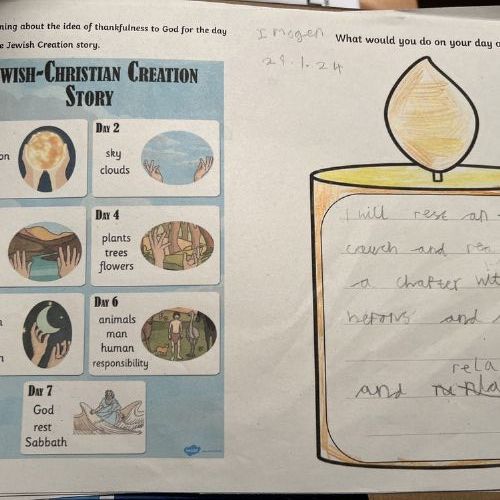 ning about the idea of thankfulness to God for the day
e Jewish Creation story.
WISH-CHRISTIAN CREATION
STORY
on
DAY 2
sky
clouds
DAY 4
plants
trees
flowers
DAY 6
animals
man
human
responsibility
DAY 7
God
rest
Sabbath
Imogen
29.1.24
What would you do on your day o
I will rest on
couch and re
a chapter wit
and
rela
and